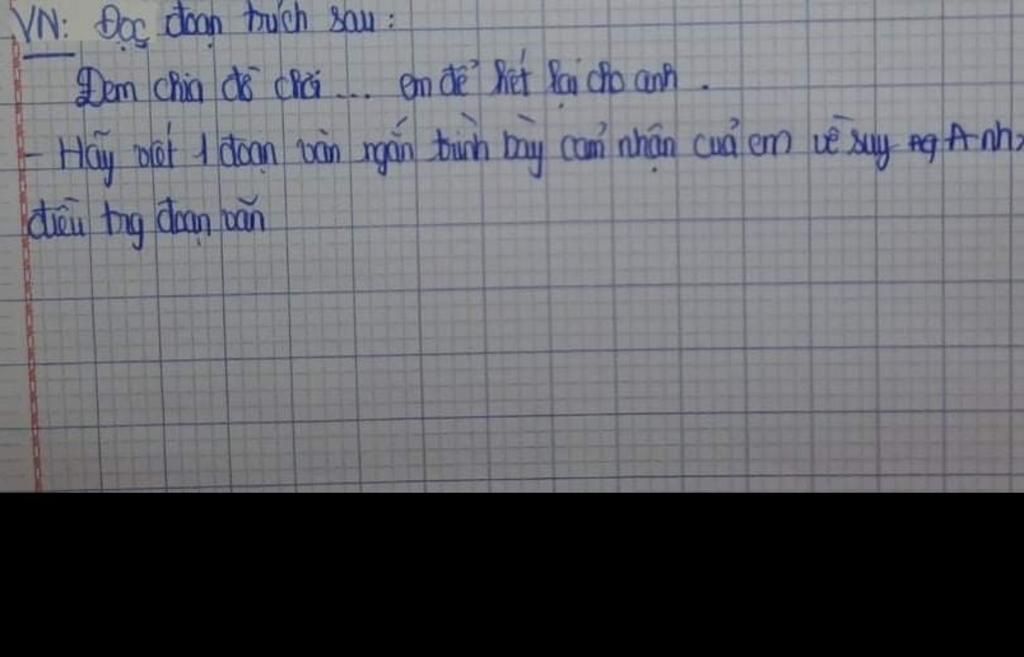 VN: Đọc đoạn trích sau:
Đem chia đồ chơi ... em để hết lại cho anh.
- Hãy viết 1 đoạn văn ngắn trình bày cảm nhận của em về suy ng
điều trg đoạn văn